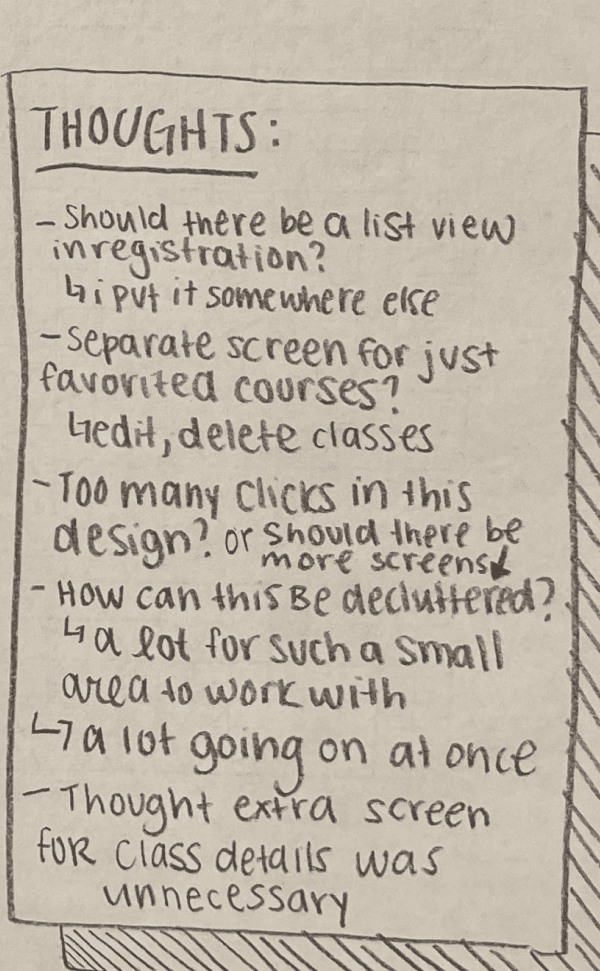 THOUGHTS:
- Should there be a list view
in registration?
↳ i put it somewhere else
- Separate screen for just
favorited courses?
↳ edit, delete classes
- Too many clicks in this
design? or should there be
more screens↙
- How can this Be decluttered?
↳ a lot for such a small
area to work with
↳ a lot going on at once
- Thought extra screen
for class details was
unnecessary